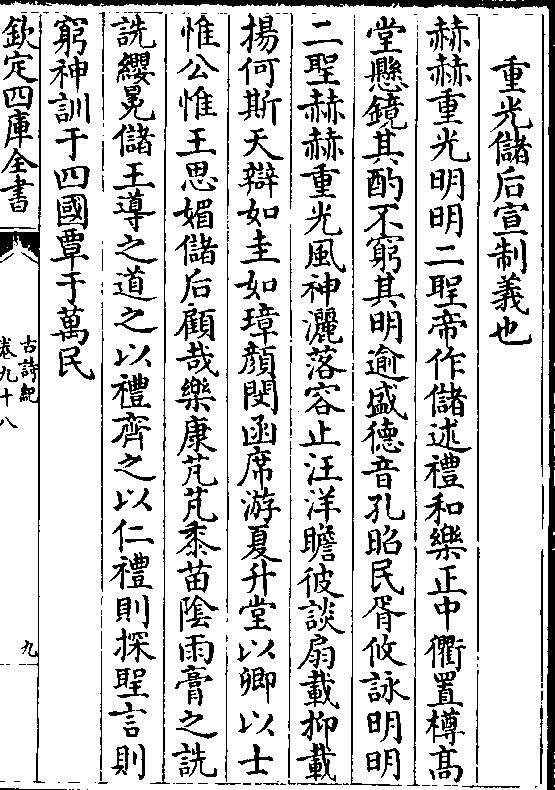 重光儲后宣制義也
赫赫重光明明二聖帝作儲述禮和樂正中衢置樽高
堂懸鏡其酌不窮其明逾盛德音孔昭民胥攸詠明明
二聖赫赫重光風神灑落容止汪洋瞻彼談扇載抑載
揚何斯天辯如圭如璋顔閔函席游夏升堂以卿以士
惟公惟王思媚儲后顧哉樂康芃芃黍苗陰雨膏之詵
詵纓冕儲王導之道之以禮齊之以仁禮則探聖言則
窮神訓于四國覃于萬民
欽定四庫全書
古詩紀
卷九十八
九